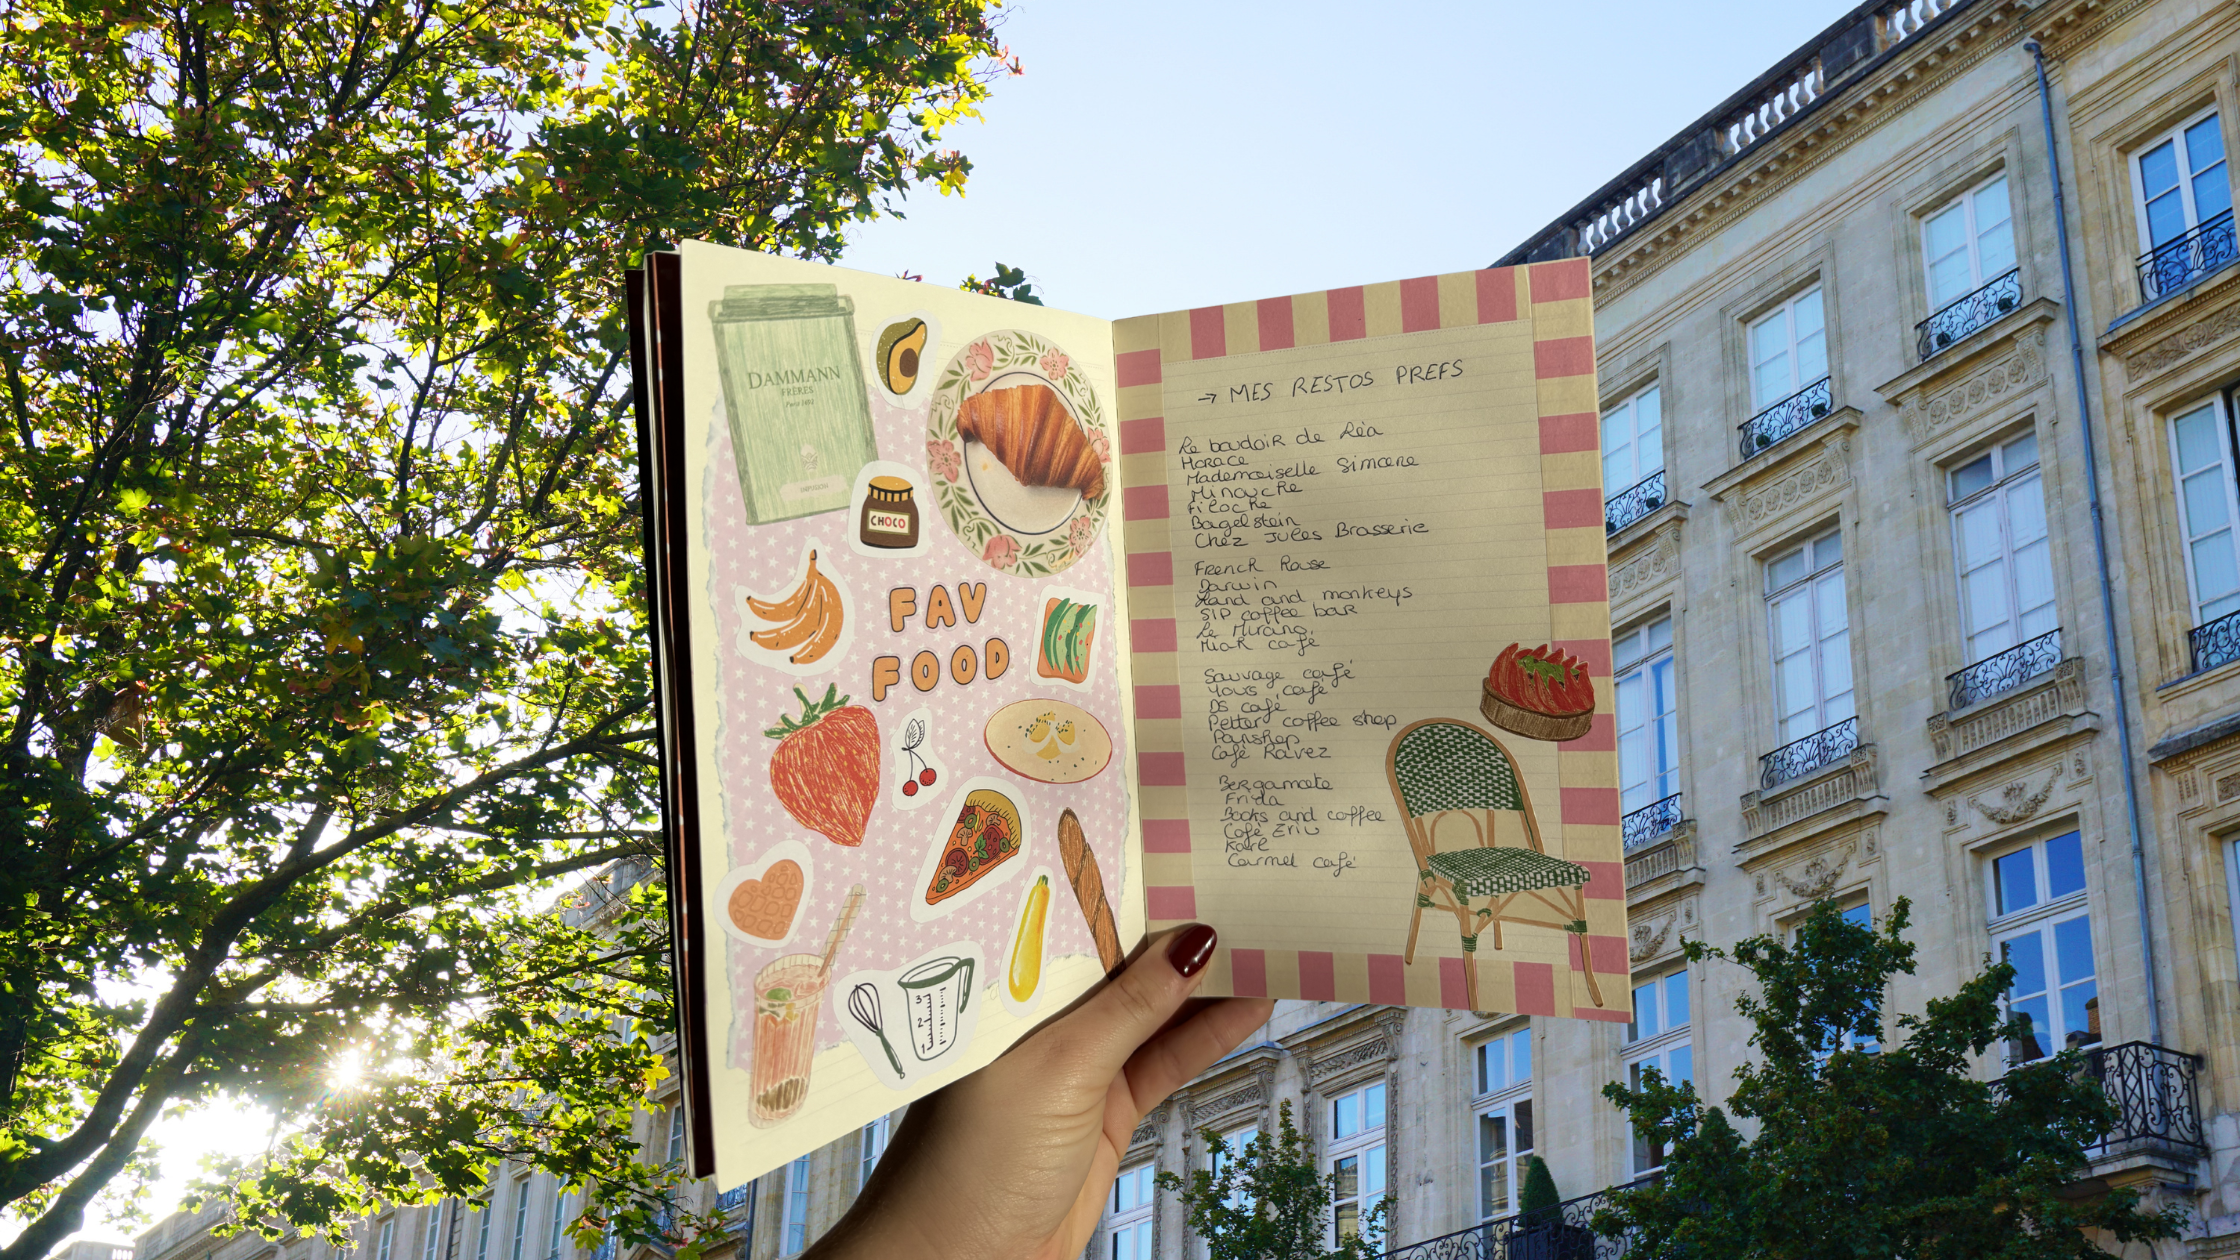 DAMMANN
FRÈRES
Paris 1692
INFUSION
CHOCO
FAV
FOOD
3
2
1
→ MES RESTOS PREFS
Le boudoir de Léa
Horace
Mademoiselle Simone
Minouche
Filoche
Bagelstein
Chez Jules Brasserie
French Rouse
Darwin
Hand and monkeys
SIP coffee bar
Le Mirano
Miak café
Sauvage café
Yours café
DS café
Pettery coffee shop
Panshop
Café Ravez
Bergamote
Frida
Books and coffee
Café
Karl
Carmel café